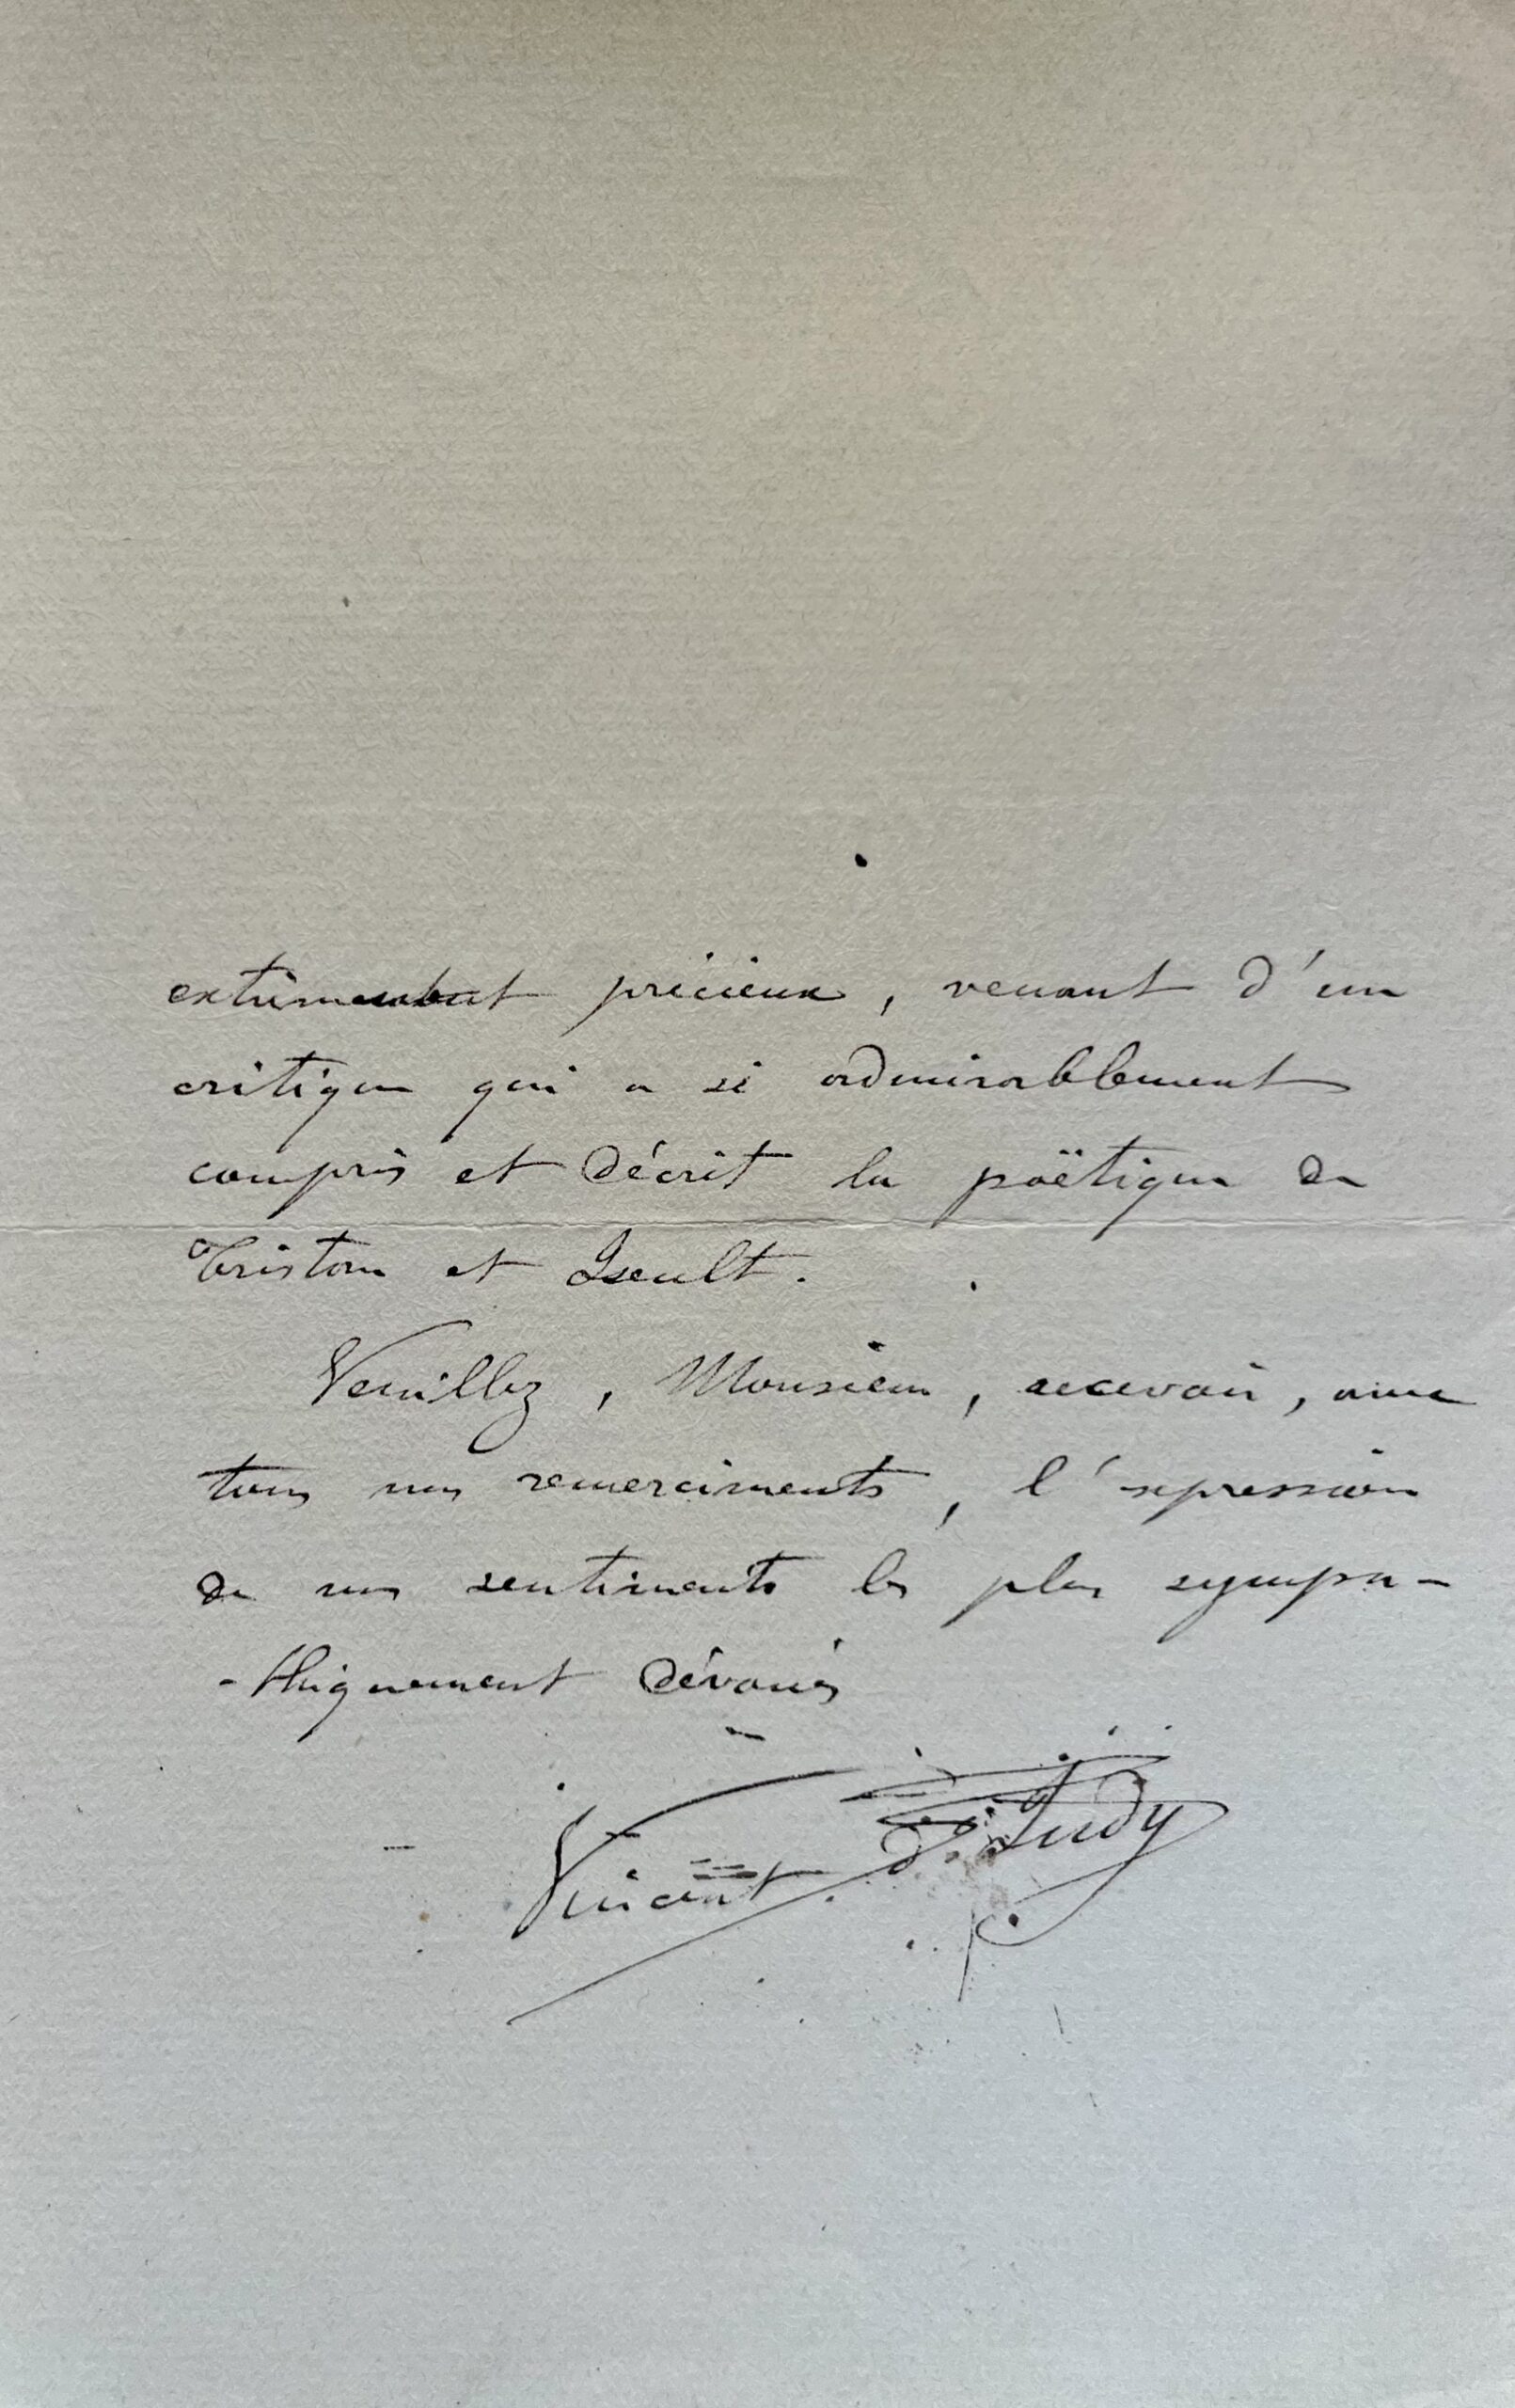 extrêmement précieux, venant d'un
critique qui a si admirablement
compris et décrit la poëtique de
Tristan et Iseult.
Veuillez, Monsieur, recevoir, avec
tous mes remerciments, l'expression
de mes sentiments les plus sympa-
-thiquement dévoués
Vincent d'Indy